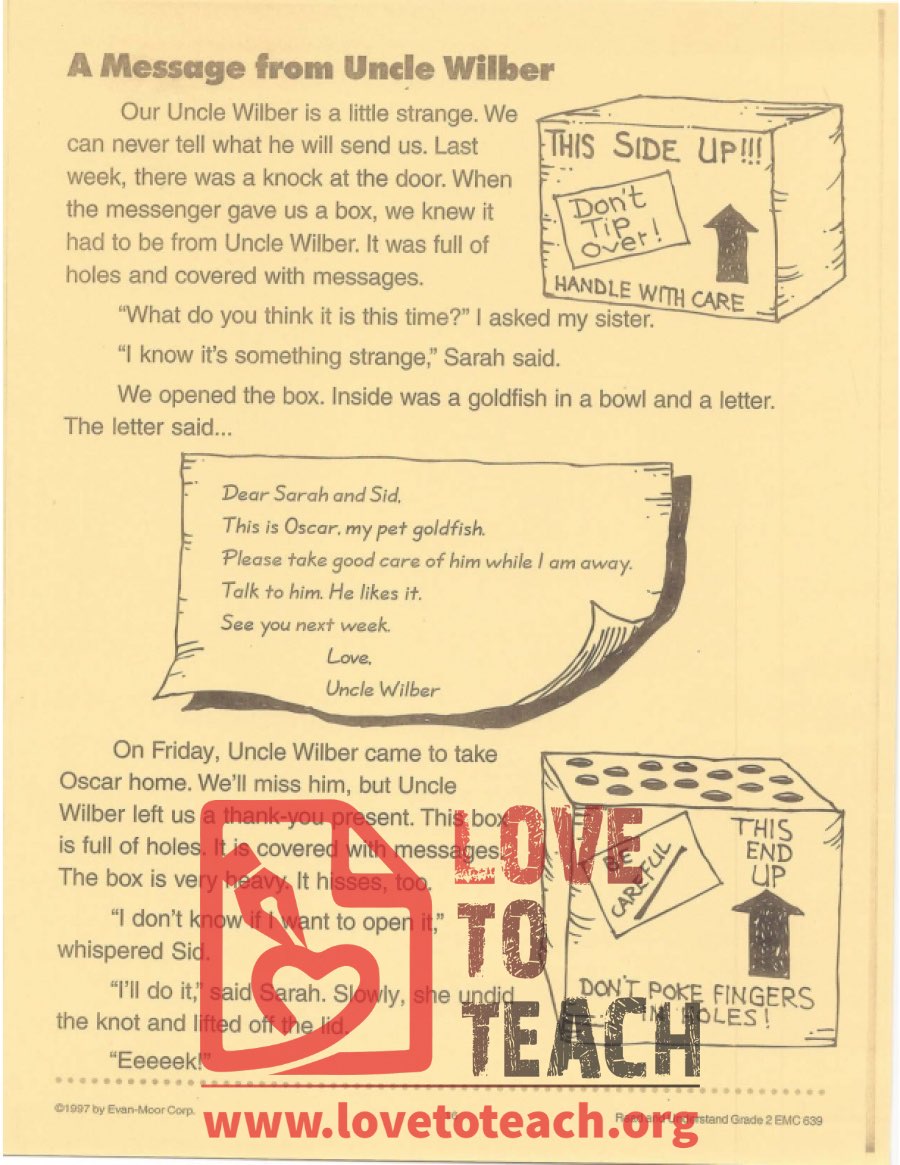 A Message from Uncle Wilber
Our Uncle Wilber is a little strange. We
can never tell what he will send us. Last
week, there was a knock at the door. When
the messenger gave us a box, we knew it
had to be from Uncle Wilber. It was full of
holes and covered with messages.
THIS SIDE UP!!!
Don't
Tip
over!
HANDLE WITH CARE
“What do you think it is this time?” I asked my sister.
“I know it's something strange,” Sarah said.
We opened the box. Inside was a goldfish in a bowl and a letter.
The letter said...
Dear Sarah and Sid,
This is Oscar, my pet goldfish.
Please take good care of him while I am away.
Talk to him. He likes it.
See you next week.
Love,
Uncle Wilber
On Friday, Uncle Wilber came to take
Oscar home. We'll miss him, but Uncle
Wilber left us a thank-you present. This box
is full of holes. It is covered with messages.
The box is very heavy. It hisses, too.
“I don't know if I want to open it,”
whispered Sid.
“I'll do it,” said Sarah. Slowly, she undid
the knot and lifted off the lid.
“Eeeeek!”
BE
CAREFUL
THIS
END
UP
DON'T POKE FINGERS
IN HOLES!
LOVE
TO
TEACH
©1997 by Evan-Moor Corp.
6
Read and Understand Grade 2 EMC 639
www.lovetoteach.org